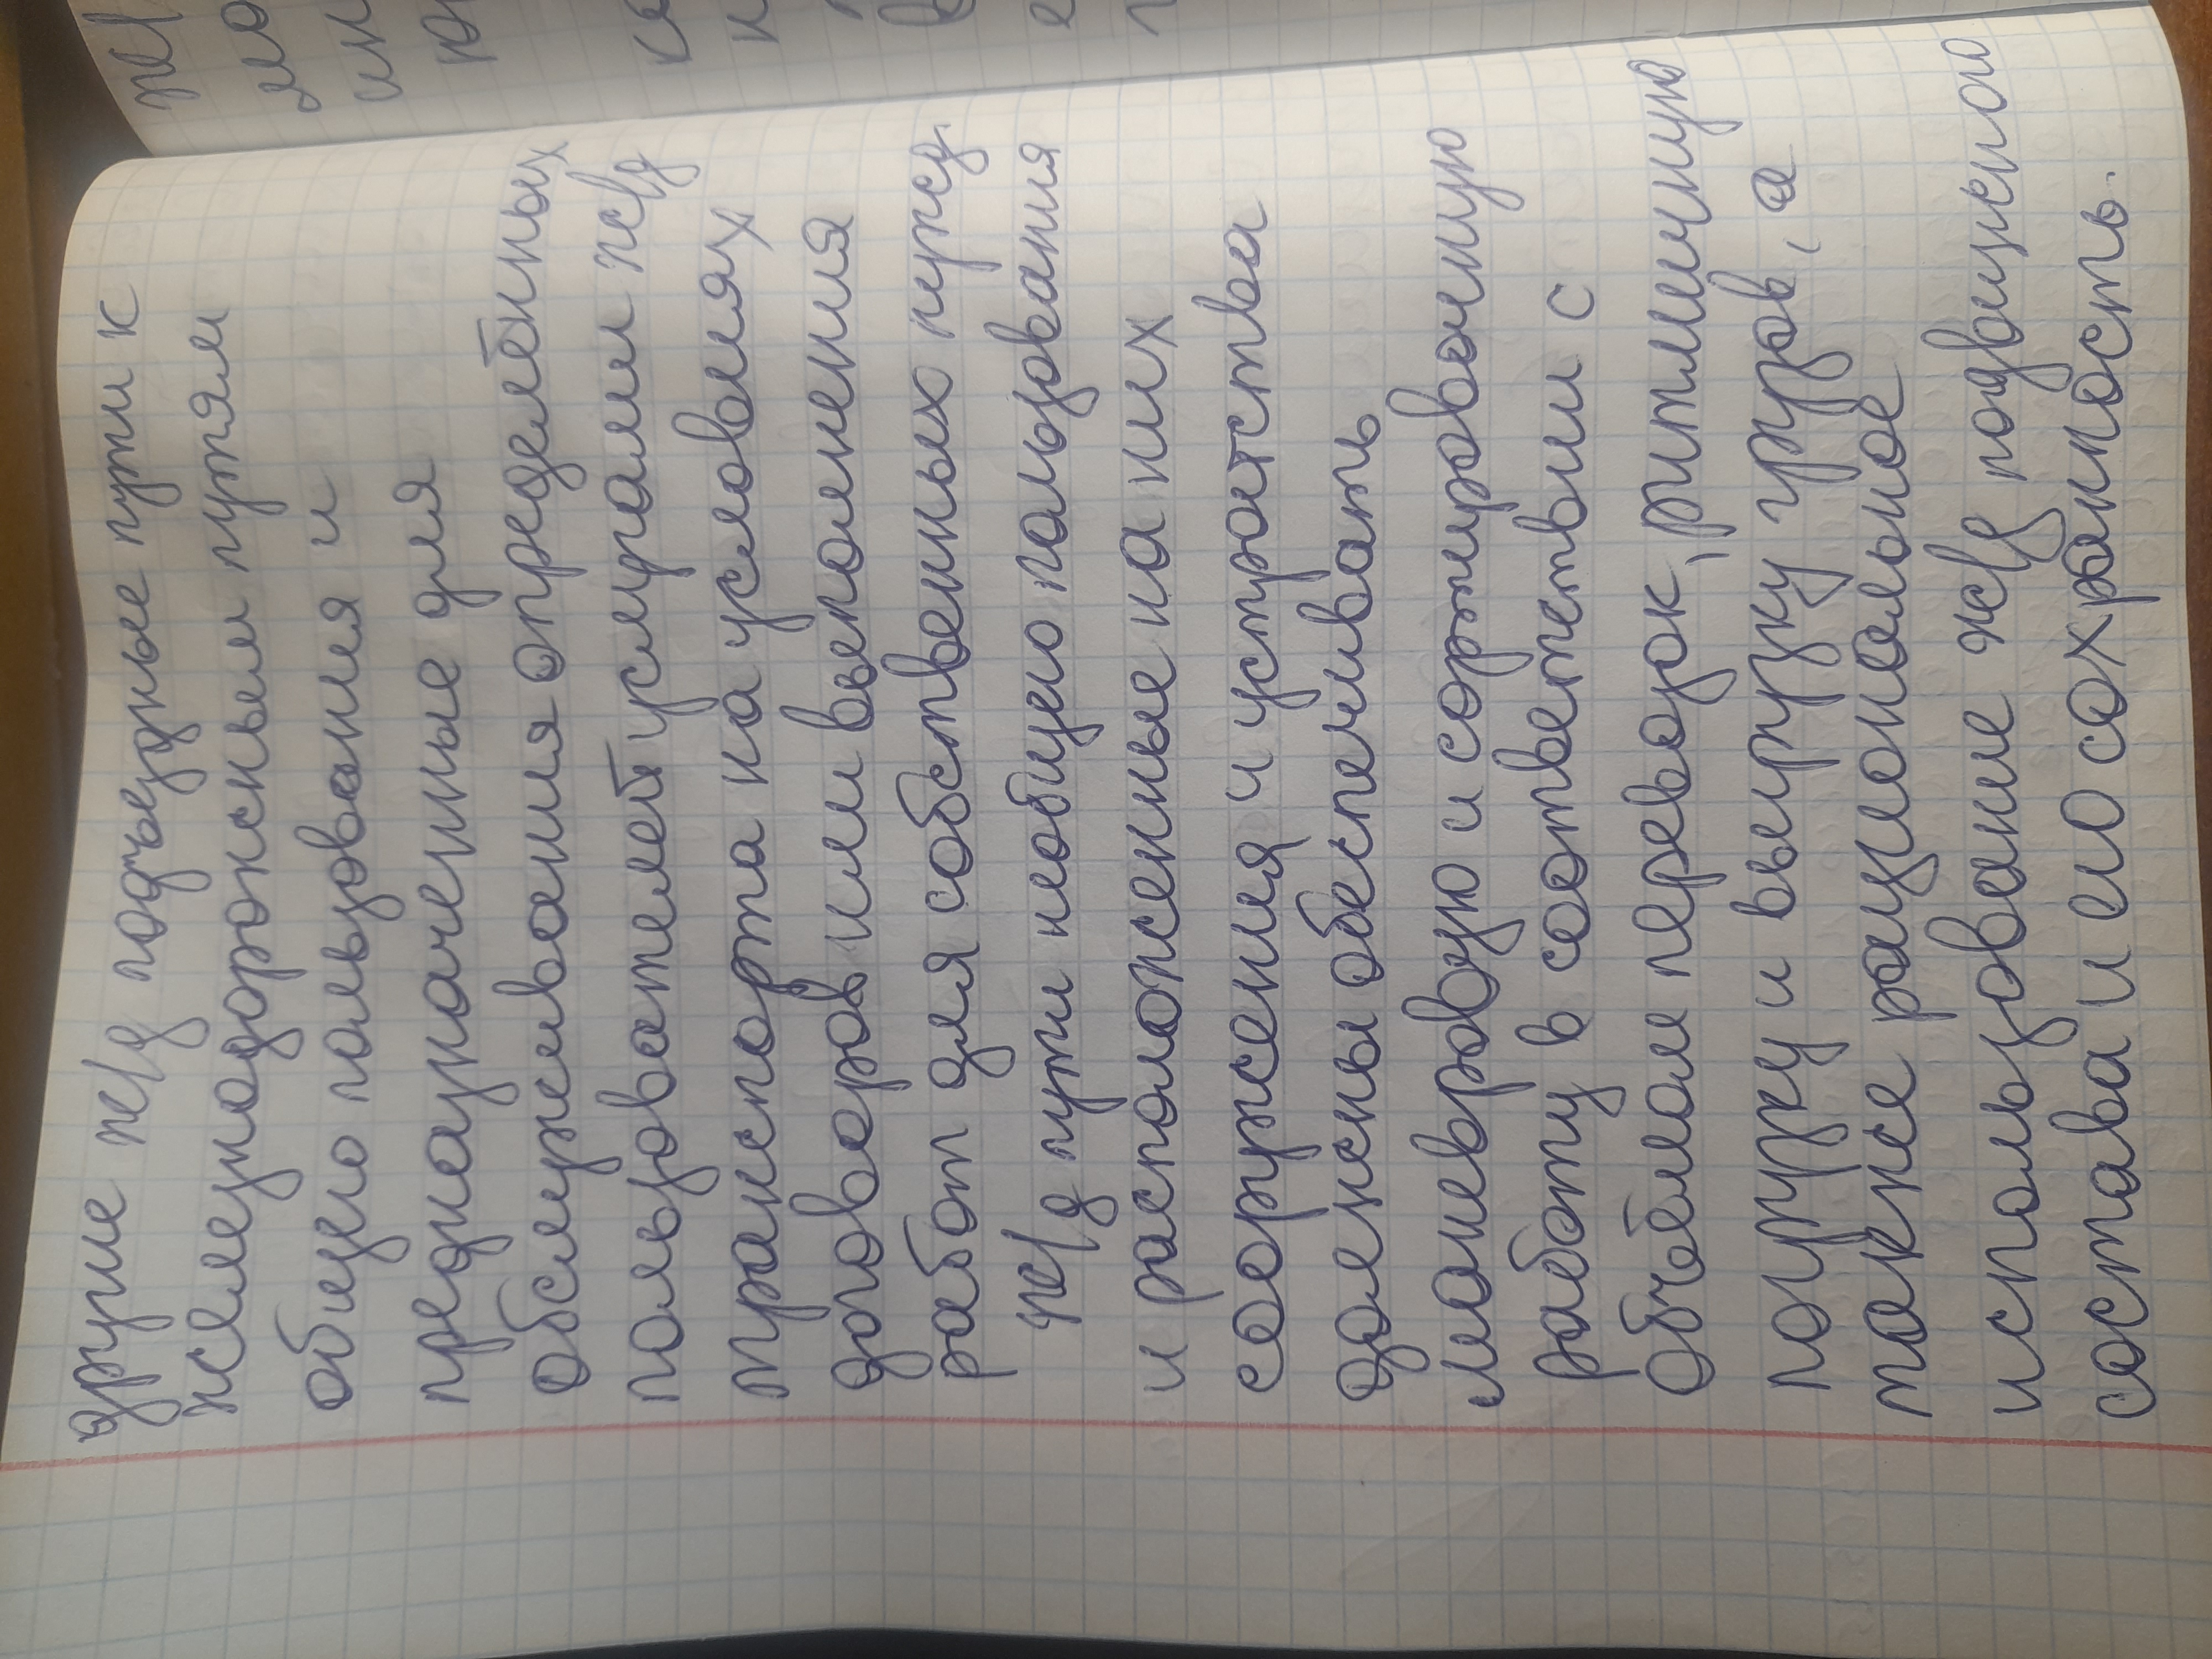 другие ж/д подъездные пути к
железнодорожным путям
общего пользования и
предназначенные для
обслуживания определённых
пользователей услугами ж/д
транспорта на условиях
договоров или выполнения
работ для собственных нужд.
ж/д пути необщего пользования
и расположенные на них
сооружения и устройства
должны обеспечивать
маневровую и сортировочную
работу в соответствии с
объёмом перевозок, ритмичную
погрузку и выгрузку грузов, а
также рациональное
использование ж/д подвижного
состава и его сохранность.